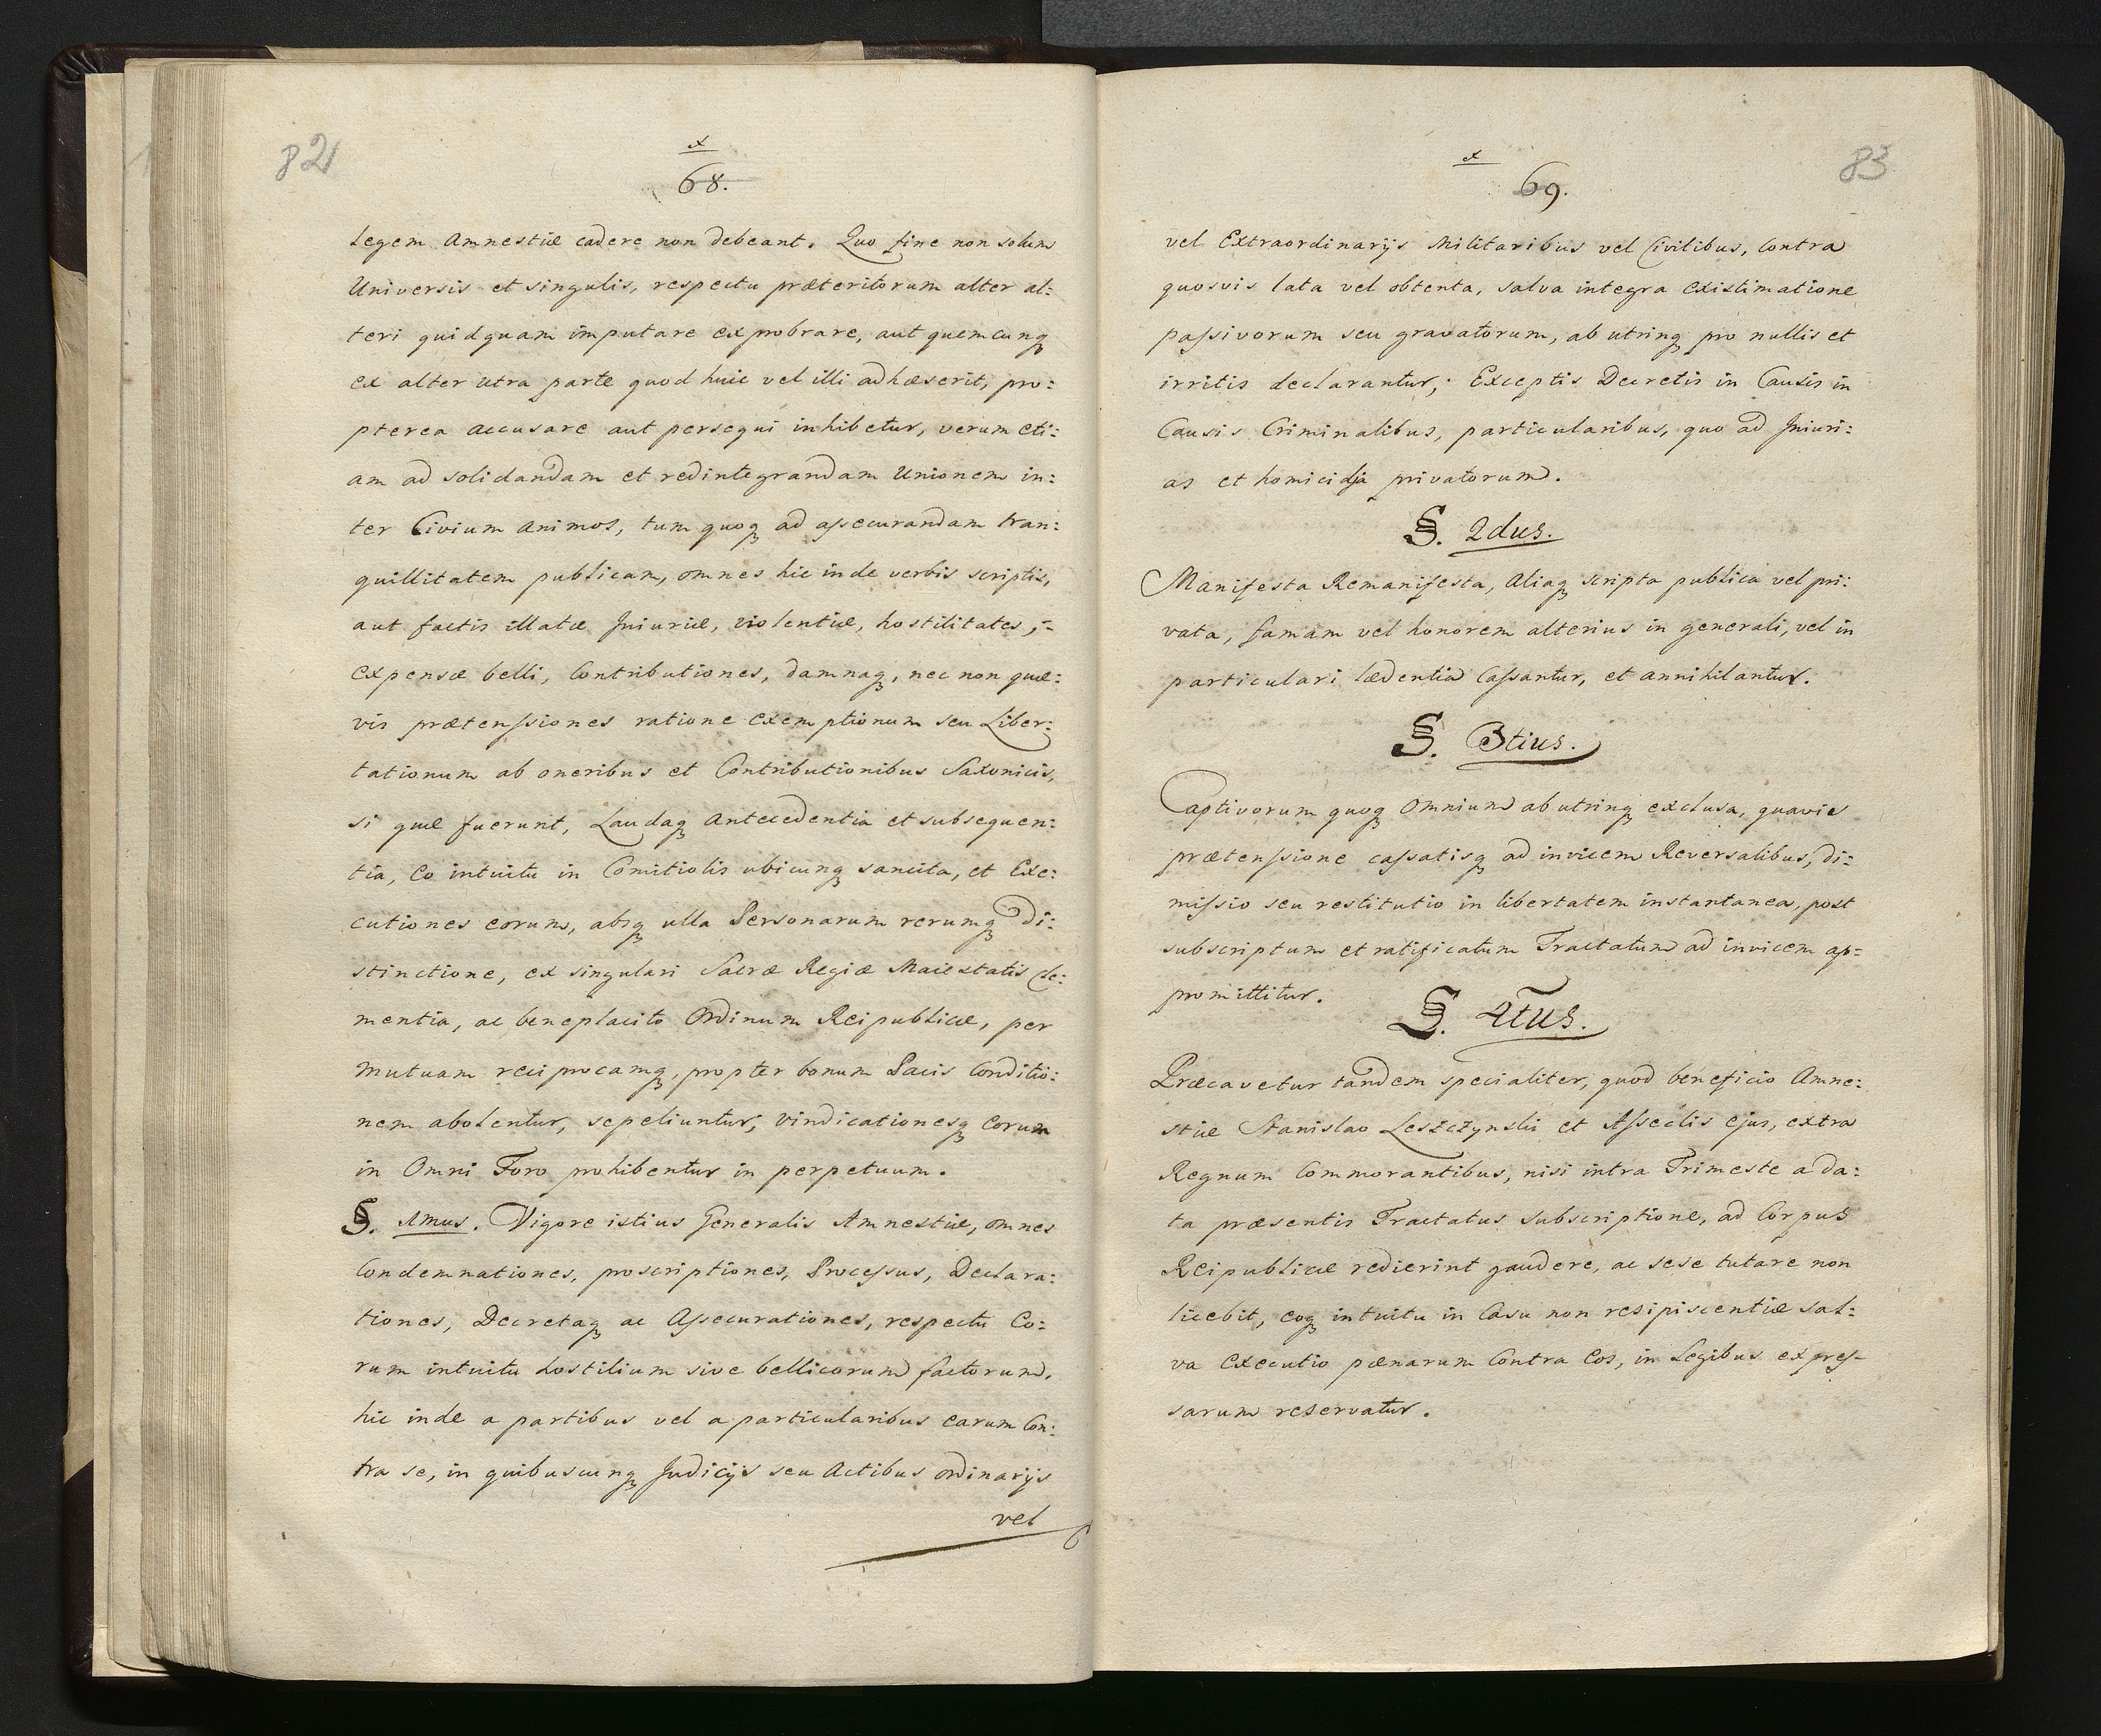 82
x
68.
legem Amnestiæ cadere non debeant. Quo fine non solum
Universis et singulis, respectu præteritorum alter al:
teri quidquam imputare exprobrare, aut quemcunqꝫ
ex alter utra parte quod huic vel illi adhæserit, pro:
pterea accusare aut persequi inhibetur, verum eti:
am ad solidandam et redintegrandam Unionem in:
ter Civium animos, tum quoqꝫ ad assecurandam tran:
quillitatem publicam, omnes hic inde verbis scriptis,
aut factis illatæ Iniuriæ, violentiæ, hostilitates,
expensæ belli, Contributiones, damnaqꝫ, nec non quæ:
vis prætenssiones ratione exemptionum seu Liber:
tationum ab oneribus et Contributionibus Saxonicis,
si quæ fuerunt, Laudaqꝫ antecedentia et subsequen:
tia, eo intuitu in Comitiolis ubicunqꝫ sancita, et Exe:
cutiones eorum, absqꝫ ulla Personarum rerumqꝫ di:
stinctione, ex singulari Sacræ Regiæ Maiestatis Cle:
mentia, ac beneplacito Ordinum Reipublicæ, per
mutuam reciprocamqꝫ, propter bonum Pacis Conditio:
nem abolentur, sepeliuntur, vindicationesqꝫ eorum
in Omni Foro prohibentur in perpetuum.
§. 1mus. Vigore istius Generalis Amnestiæ, omnes
Condemnationes, proscriptiones, Processus, Declara:
tiones, Decretaqꝫ ac Assecurationes, respectu Eo:
rum intuitu hostilium sive bellicorum factorum,
hic inde a partibus vel a particularibus earum Con:
tra se, in quibuscunqꝫ Judicijs seu Actibus ordinarijs
vel
83
x
69.
vel Extraordinarijs Militaribus vel Civilibus, Contra
quosvis lata vel obtenta, salva integra existimatione
passivorum seu gravatorum, ab utrinqꝫ pro nullis et
irritis declarantur, Exceptis Decretis in Causis in
Causis Criminalibus, particularibus, quo ad Iniuri:
as et homicidja privatorum.
§. 2dus.
Manifesta Remanifesta, aliaqꝫ scripta publica vel pri:
vata, famam vel honorem alterius in generali, vel in
particulari lædentia Cassantur, et annihilantur.
§. 3tius.
Captivorum quoqꝫ omnium ab utrinqꝫ exclusa, quavis
prætenssione cassatisqꝫ ad invicem Reversalibus, di:
missio seu restitutio in libertatem instantanea, post
subscriptum et ratificatum Tractatum ad invicem ap=
promittitur.
§. 4tus.
Præcavetur tandem specialiter, quod beneficio Amne:
stiæ Stanislao Leszczynski et Asseclis ejus, extra
Regnum Commorantibus, nisi intra Trimestre a da:
ta præsentis Tractatus subscriptione, ad Corpus
Reipublicæ redierint gaudere, ac sese tutare non
licebit, eoqꝫ intuitu in Casu non resipiscentiæ sal:
va executio pænarum Contra Eos, in Legibus expres-
sarum reservatur.